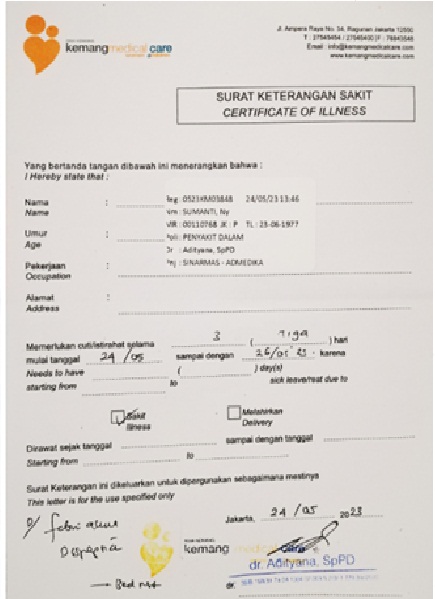 kemangmedical care
Jl. Ampera Raya No. 34, Ragunan Jakarta 12550
Email : info@kemangmedicalcare.com
www.kemangmedicalcare.com
SURAT KETERANGAN SAKIT
CERTIFICATE OF ILLNESS
Yang bertanda tangan dibawah ini menerangkan bahwa :
I Hereby state that :
Reg : 0523KM03848 24/05/23 13:46
Nama :
Name
SUMIANTI, Ny
MR : 00110768 JK : P TL : 23-06-1977
Umur :
Age
Poli : PENYAKIT DALAM
Dr : Adityana, SpPD
Pekerjaan :
Occupation
Pnj : SINARMAS - ADMEDIKA
Alamat :
Address
Memerlukan cuti/istirahat selama 3 ( Tiga ) hari
mulai tanggal 24/05 sampai dengan 26/05 23 karena
Needs to have ( ) day(s)
starting from to sick leave/rest due to
Sakit
Illness
Melahirkan
Delivery
Dirawat sejak tanggal sampai dengan tanggal
Starting from to
Surat Keterangan ini dikeluarkan untuk dipergunakan sebagaimana mestinya
This letter is for the use specified only
Jakarta, 24/05 2023
Dyspepsia
kemang medical care
Bed rest
dr. Adityana, SpPD
dr.